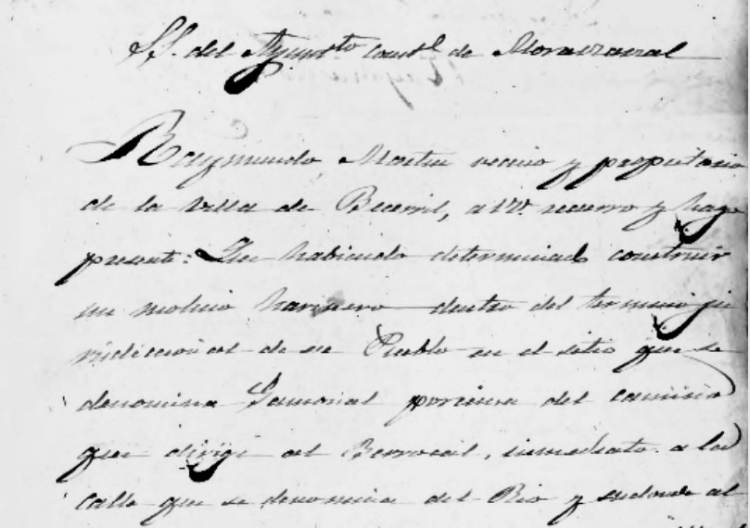 SS. del Ayunto. Consl. de Moralzarzal
Raymundo Martin vecino y propietario
de la Villa de Becerril, a VV. recurro y hago
presente: Que habiendo determinado construir
un molino harinero dentro del termino ju
risdiccional de su Pueblo en el sitio que se
denomina Gamonal por cima del camino
que dirige al Berrocal, inmediato a la
calle que se denomina del Rio y al